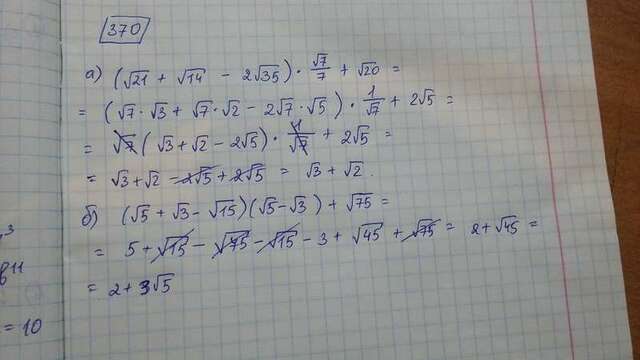 370
а) (√21 + √14 - 2√35) · √7/7 + √20 =
= (√7 · √3 + √7 · √2 - 2√7 · √5) · 1/√7 + 2√5 =
= √7 (√3 + √2 - 2√5) · 1/√7 + 2√5 =
= √3 + √2 - 2√5 + 2√5 = √3 + √2.
б) (√5 + √3 - √15)(√5 - √3) + √75 =
= 5 + √15 - √75 - √15 - 3 + √45 + √75 = 2 + √45 =
= 2 + 3√5
= 10